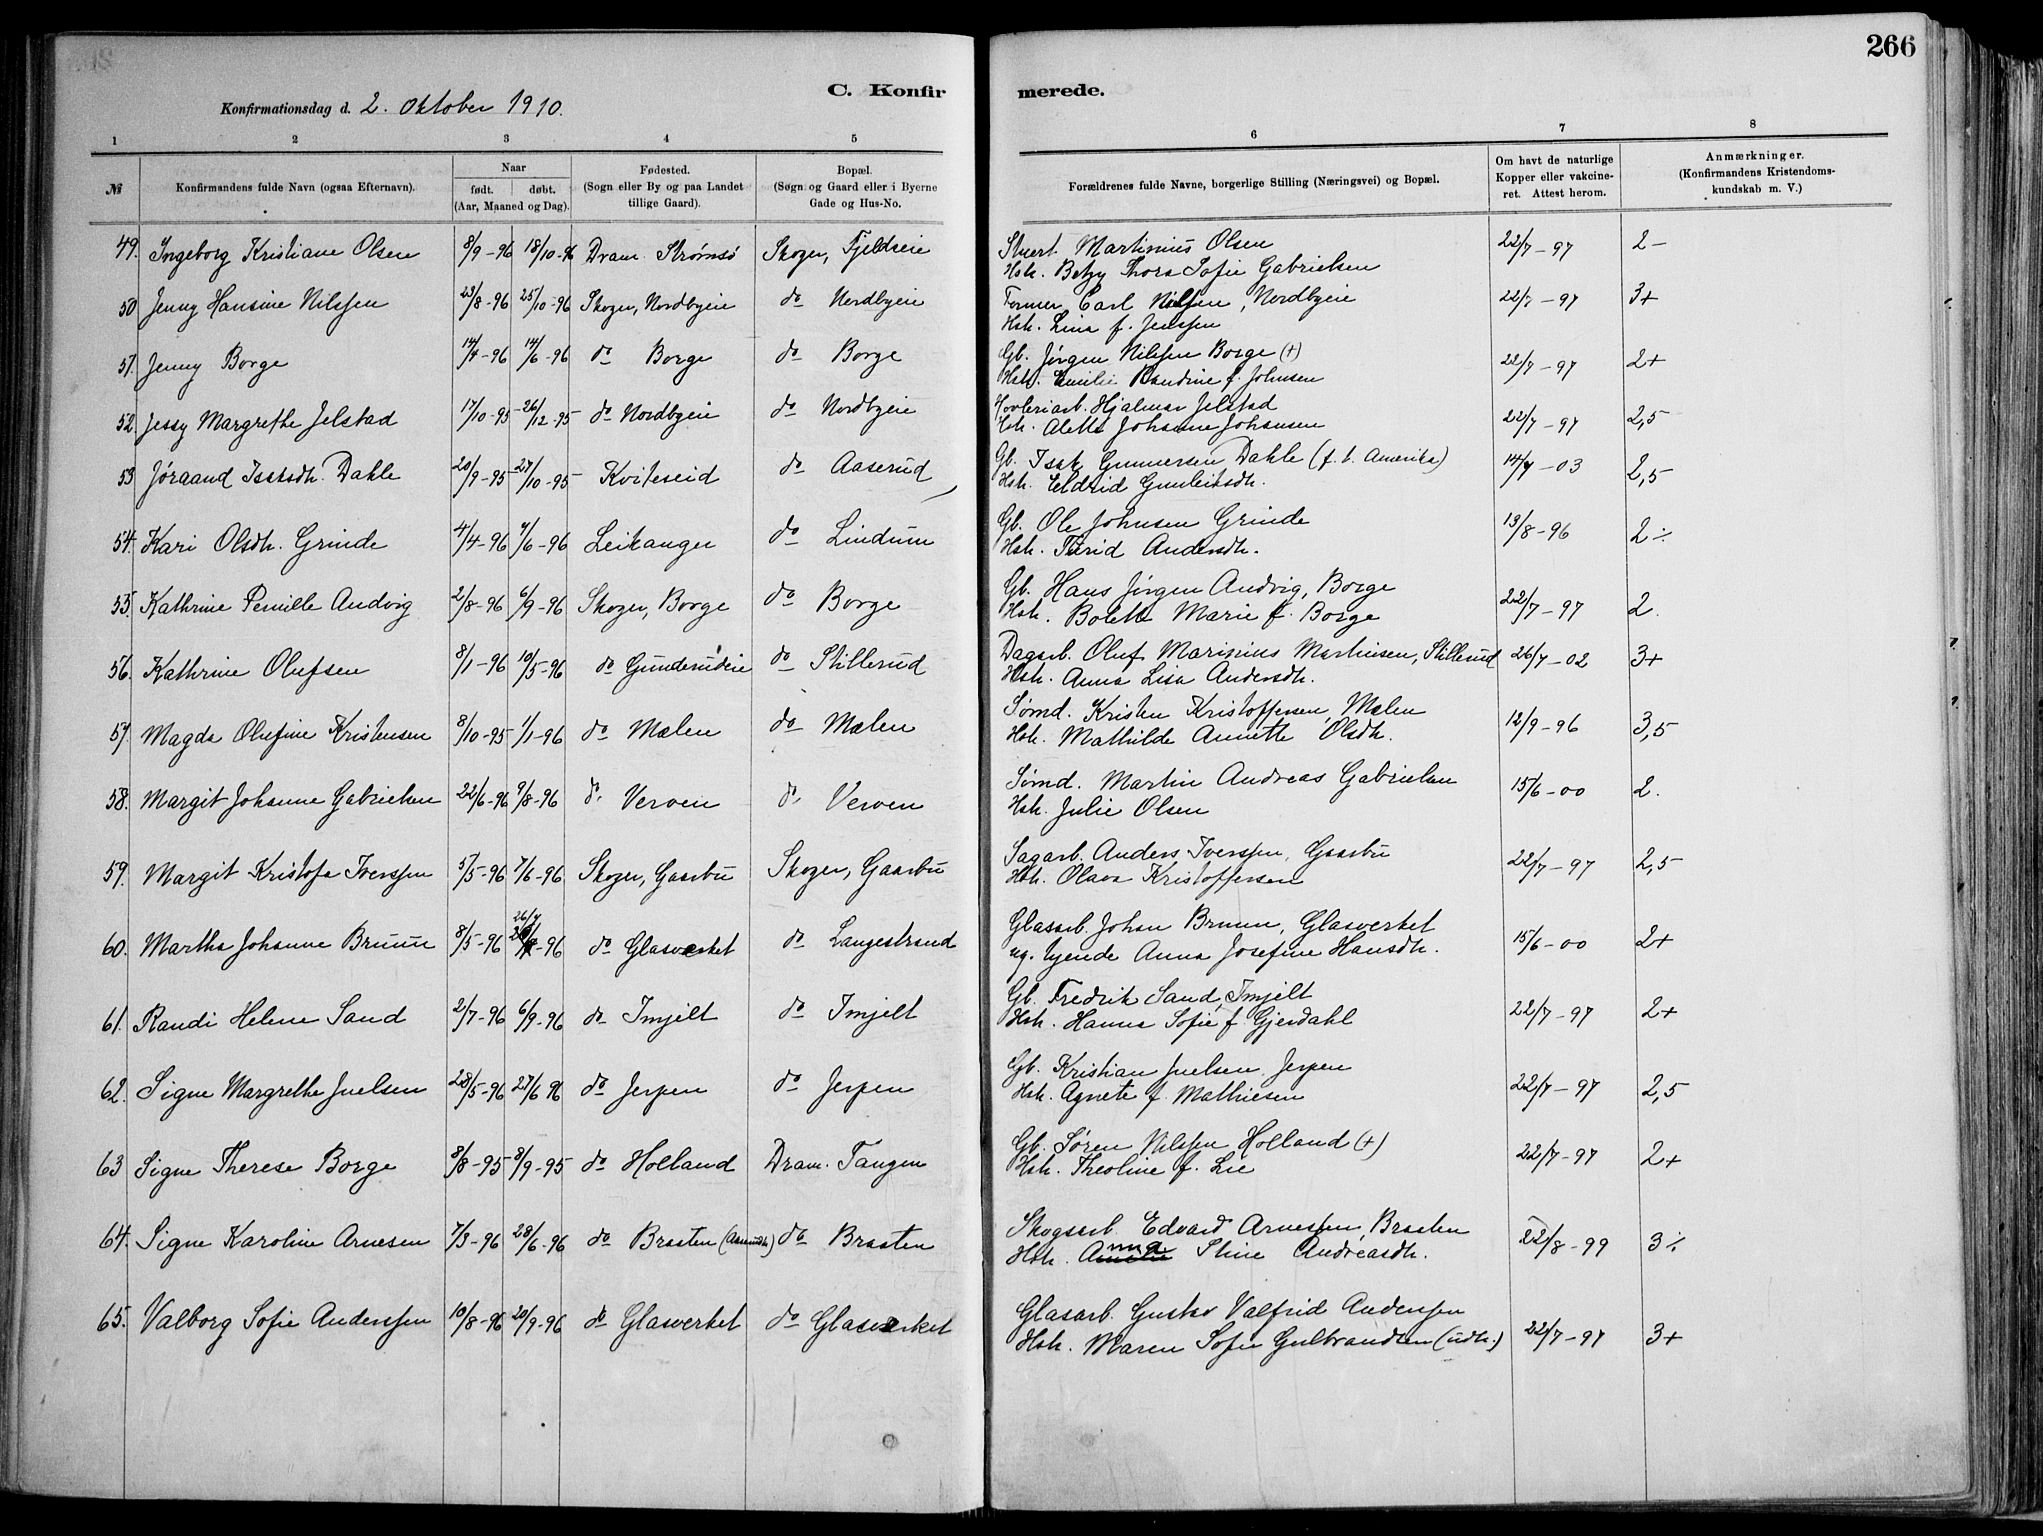 266
C. Konfir
merede.
Konfirmationsdag d. 2. Oktober 1910.
1 2 3 4 5 6 7 8
№ Konfirmandens fulde Navn (ogsaa Efternavn). Naar født. døbt. (Aar, Maaned og Dag). Fødested. (Sogn eller By og paa Landet tillige Gaard). Bopæl. (Sogn og Gaard eller i Byerne Gade og Hus-No. Forældrenes fulde Navne, borgerlige Stilling (Næringsvei) og Bopæl. Om havt de naturlige Kopper eller vakcineret. Attest herom. Anmærkninger. (Konfirmandens Kristendomskundskab m. V.)
49. Ingeborg Kristiane Olsen 8/9-96 18/10-96 Dram. Strømsø Skoger, Fjeldseie Stuert. Martinius Olsen 22/7-97 2-
Hst. Betzy Thora Sofie Gabrielsen
50 Jenny Hansine Nilssen 23/8-96 25/10-96 Skoger, Nordbyeie do Nordbyeie Former, Carl Nilssen, Nordbyeie 22/7-97 3+
Hst. Lina f. Jenssen
51. Jenny Borge 14/4-96 14/6-96 do Borge do Borge Gb. Jørgen Nilssen Borge (+) 22/7-97 2+
Hst. Emilie Randine f. Johnsen
52. Jessy Margrethe Jelstad 17/10-95 26/12-95 do Nordbyeie do Nordbyeie Hovleriarb. Hjalmar Jelstad 22/7-97 2,5
Hst. Alette Johanne Johansen
53 Jøraand Isaksdt. Dahle 20/9-95 27/10-95 Kviteseid do Aaserud Gb. Isak Gunnersen Dahle (f. t. Amerika) 14/7-03 2,5
Hst. Eldrid Gunleiksdt.
54. Kari Olsdt. Grinde 4/4-96 7/6-96 Leikanger do Lindum Gb. Ole Johnsen Grinde 13/8-96 2÷
Hst. Turid Andersdt.
55. Kathrine Pernille Andvig 2/8-96 6/9-96 Skoger, Borge do Borge Gb. Hans Jørgen Andvig, Borge 22/7-97 2.
Hst. Bolette Marie f. Borge
56. Kathrine Olufsen 8/1-96 10/5-96 do Gunderudeie do Stillerud Dagarb. Oluf Marinius Martinsen, Stillerud 26/7-02 3+
Hst. Anna Lisa Andersdt.
57. Magda Olufine Kristensen 8/10-95 1/1-96 do Mælen do Mælen Sømd. Kristen Kristoffersen, Mælen 12/9-96 3,5
Hst. Mathilde Annette Olsdt.
58. Margit Johanne Gabrielsen 22/6-96 9/8-96 do Verven do Verven Sømd. Martin Andreas Gabrielsen 15/6-00 2.
Hst. Julie Olsen
59. Margit Kristofa Iverssen 5/5-96 7/6-96 Skoger, Gaarbu Skoger, Gaarbu Sagarb. Anders Iverssen, Gaarbu 22/7-97 2,5
Hst. Olava Kristoffersen
60. Martha Johanne Bruun 8/5-96 26/7-96 do Glasverket do Langestrand Glasarb. Johan Bruun, Glasverket 15/6-00 2+
ug. tyende Anna Josefine Hansdt.
61. Randi Helene Sand 2/7-96 6/9-96 do Imjelt do Imjelt Gb. Fredrik Sand, Imjelt 22/7-97 2+
Hst. Hanna Sofie f. Gjerdahl
62. Signe Margrethe Juelsen 28/5-96 27/6 96 do Jerpen do Jerpen Gb. Kristian Juelsen, Jerpen 22/7-97 2,5
Hst. Agnete f. Mathiesen
63 Signe Therese Borge 8/8-95 8/9-95 do Holland Dram. Tangen Gb. Søren Nilssen Holland (+) 22/7-97 2+
Hst. Theoline f. Lie
64. Signe Karoline Arnesen 7/3-96 28/6-96 do Braaten do Braaten Skogsarb. Edvard Arnessen, Braaten 22/8-99 3÷
Hst. Anna Stine Andreasdt.
65. Valborg Sofie Anderssen 10/8-96 20/9-96 do Glasverket do Glasverket Glasarb. Gustav Valfrid Anderssen 22/7-97 3+
Hst. Maren Sofie Gulbrandsen (udtr.)